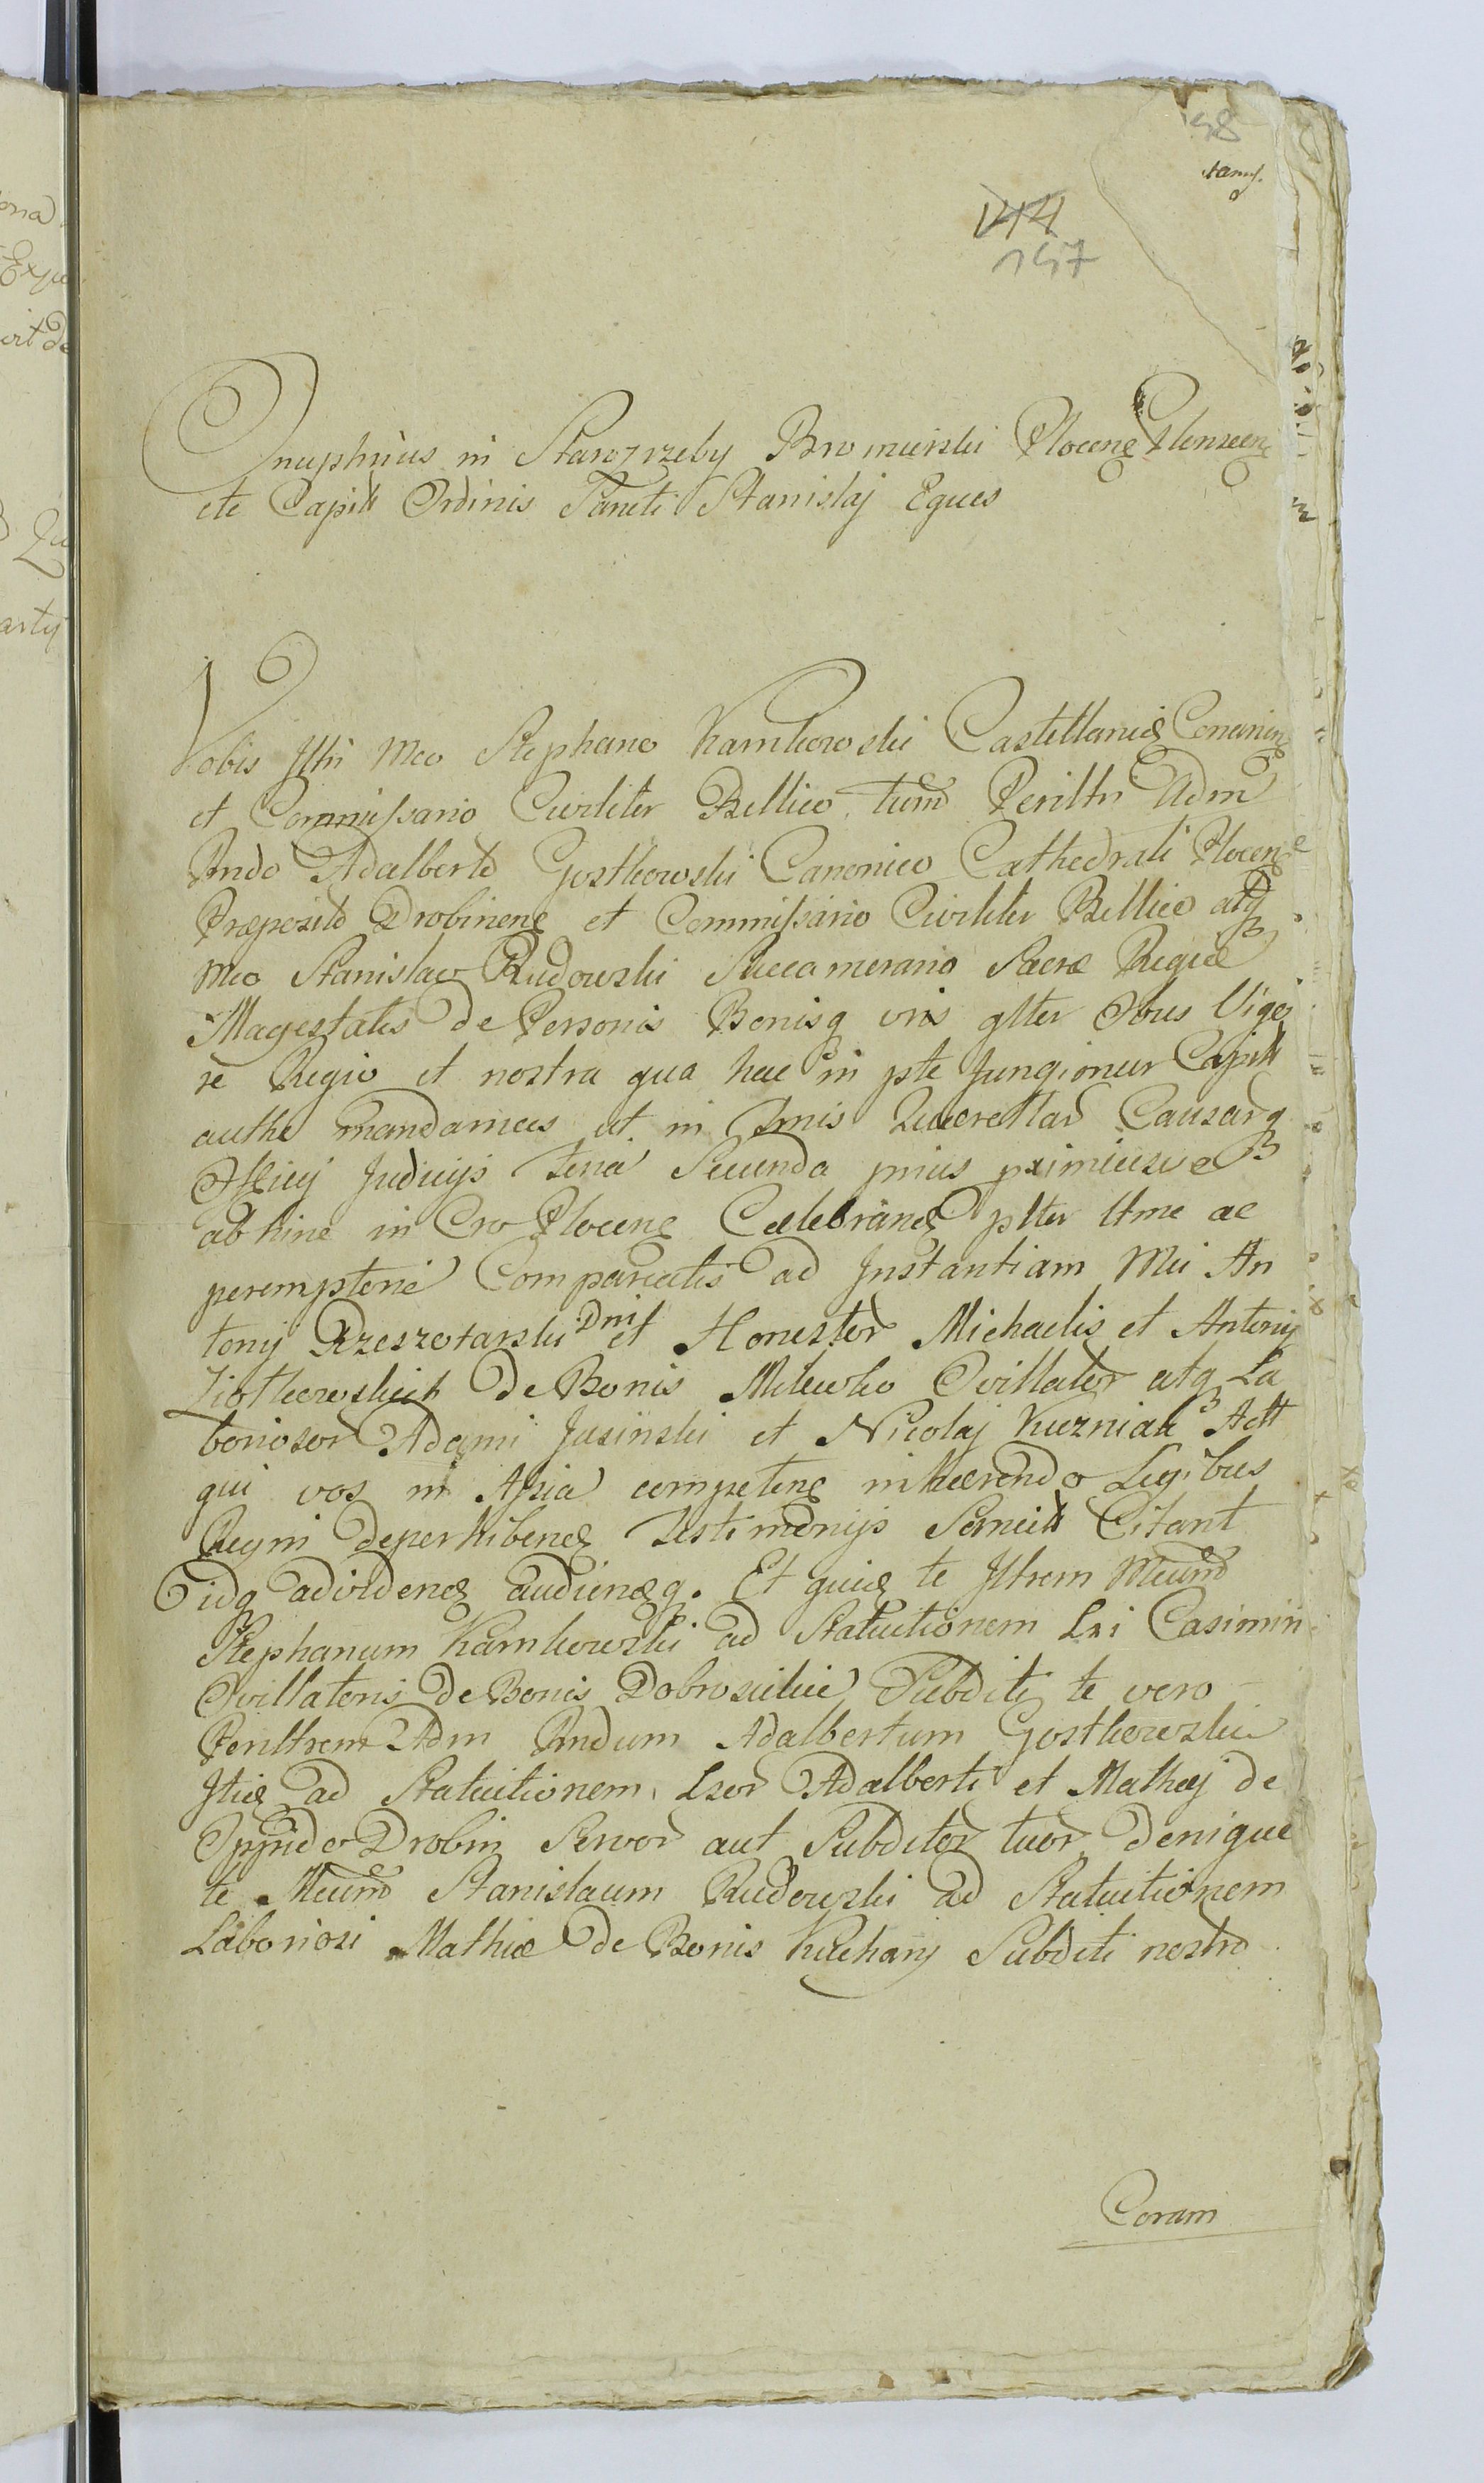 98
stamp.
144
147
Onuphrius in Starozrzeby Bromierski Plocenę Plonscenę
etc Capitt Ordinis Sancti Stanislaj Eques
Vobis Illri Mco Stephano Kamkowski Castellanię
et Commissario Civiliter Bellico tum Perilltri Adm
Rndo Adalberto Gostkowski Canonico Cathedrali Plocenę
Præposito Drobinenę et Commissario Civiliter Bellico atq
Mco Stanislao Rudowski Succamerario Sacræ Regiæ
Magestatis de Personis Bonisq vris glter Obus Vigo
re Regio et nostra qua hac in pte fungimur Capitt
authe mandamus ut in Querellar Causarq
Officij Judicijs prius
abhinc in Cro Plocenę Celebranę plter ltme ac
peremptorie Compareatis ad Instantiam Mci An
tonij Rzeszotarski Dni et Honestor Michaelis et Antonij
Ziotkowskich de Bonis Milewko Ovillator atq La
boriosor Adami Jasinski et Nicolaj Kuzniak Actt
qui vos in competenę inhærendo Legibus
Regni deperhibenę testimonijs Citant
Vidq advidenę audienęq. Et quię te Iltrem Mcum
Stephanum Kamkowski ad Statuitionem Lri Casimiri
Ovillatoris de Bonis Subditi te vero
Perilltrem Adm Rndum Adalbertum Gostkowski
Itię ad Statuitionem Adalberti et Mathæj de
Oppido Drobin Servor aut Subditor tuor denique
te Mcum Stanislaum Rudowski ad Statuitionem
Laboriosi Mathiæ de Bonis Kuchary Subditi
Coram